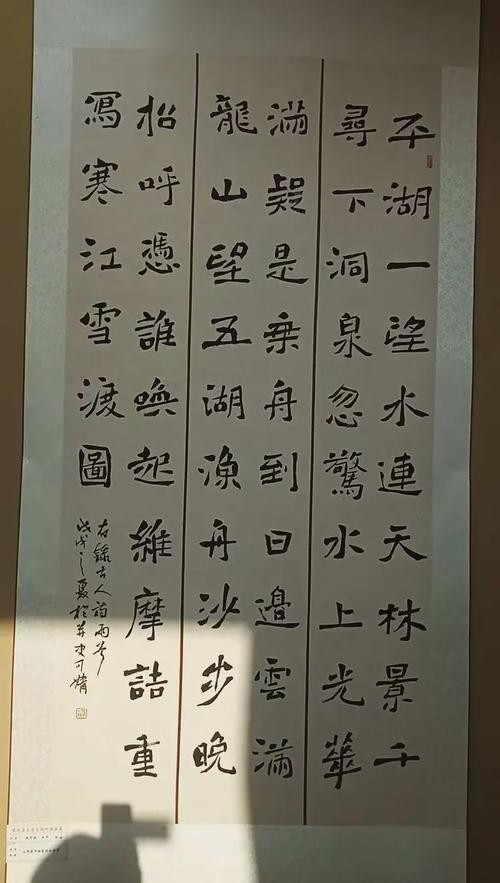 平湖一望水連天林景千
尋下洞泉忽驚水上光華
滿疑是乗舟到日邊雲滿
龍山望五湖漁舟沙步晚
招呼憑誰喚起維摩詰重
寫寒江雪渡圖
右錄古人詩兩首
戊戌之夏於并